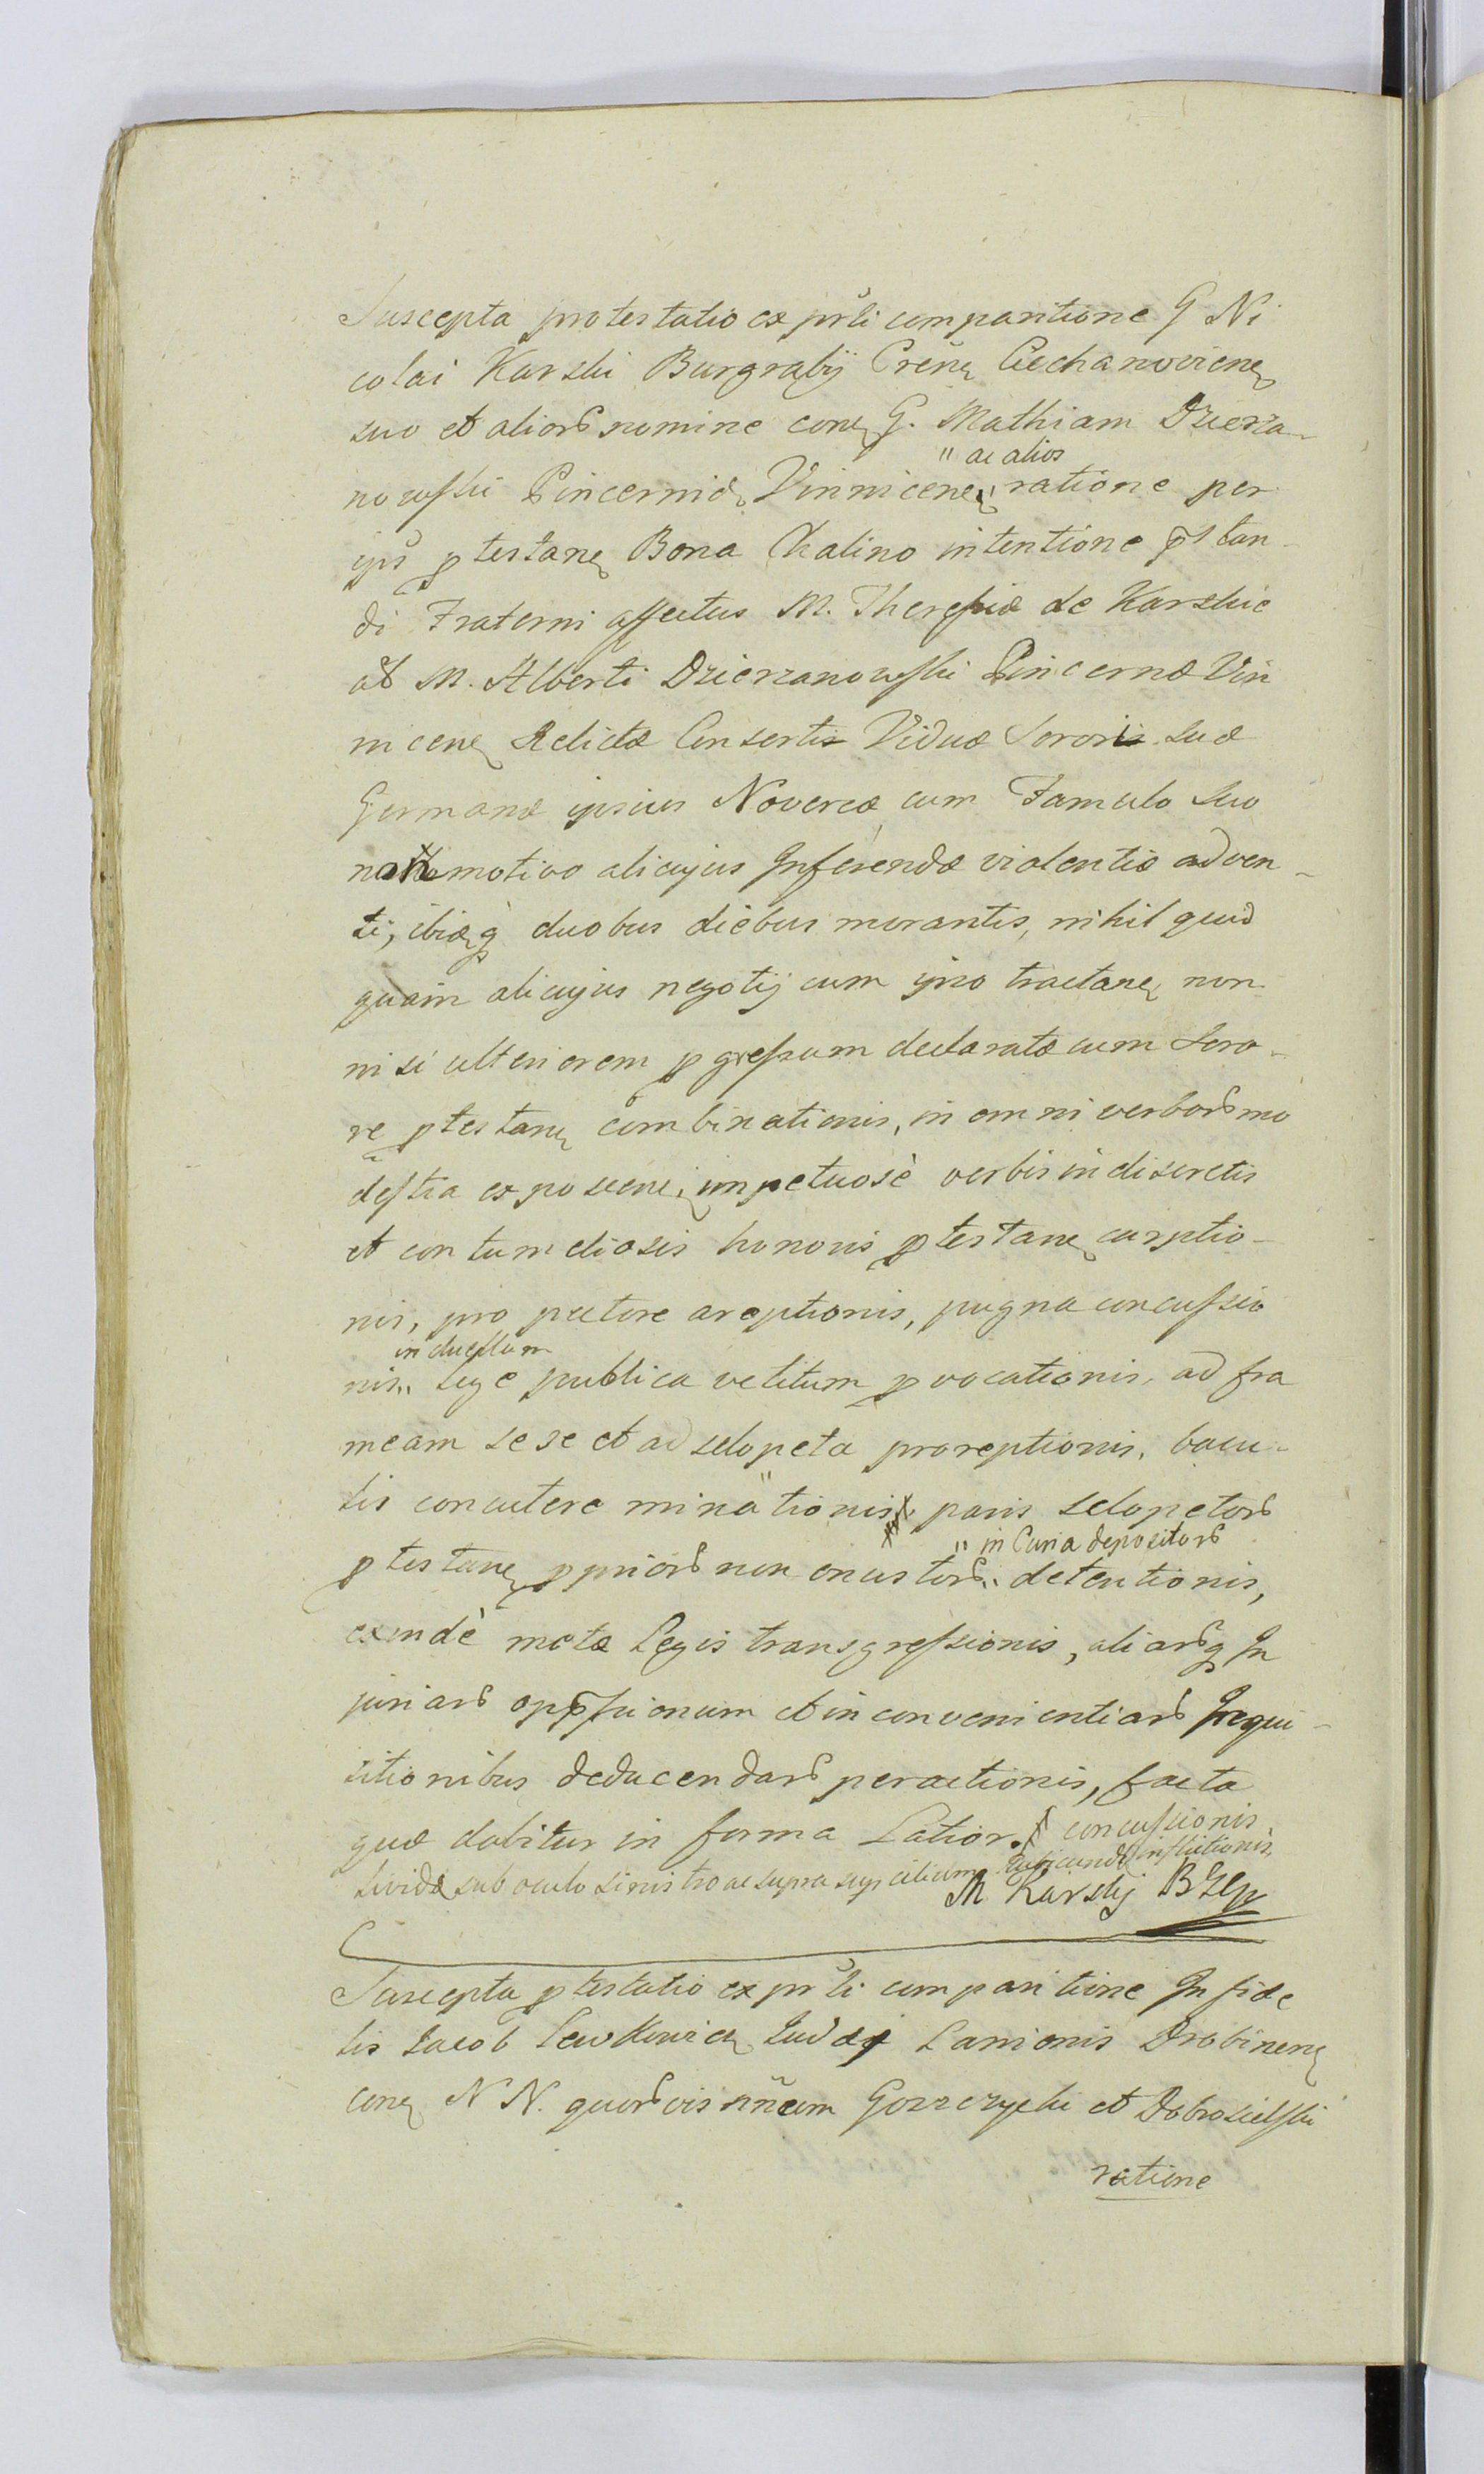 Suscepta protestatio ex prli comparitione G Ni
colai Karski Burgrabij Cren Ciechanovien
suo et alior nomine con G. Mathiam Dzierza-
" ac alios
nowski Pincernid Vinnicen " ratione per
ips ptestan Bona Chalino intentione pstan-
di Fraterni affectus M. Theresiæ de Karskie
ab M. Alberti Dzierzanowski Pincernæ Vin
nicen Relictæ Consortis Viduæ Sororis suæ
Germanæ ipsius Novercæ cum Famulo suo
non motivo alicujus Inferendæ violentiæ adven-
ti, ibidq duobus diebus morantis, nihil quid
quam alicujus negotij cum ipso tractan non
nisi ulteriorem pgressum declaratæ cum Soro-
re ptestan combinationis, in omni verbor mo
destia exposcen, impetuosè verbis indiscretis
et contumeliosis honoris ptestan carptio-
nis, pro pectore areptionis, pugna concussio
in duellum
nis " lege publica vetitum pvocationis, ad fra
meam sese et ad sclopeta proreptionis, bacu-
lis concutere minationis paris sclopetor
" in Curia depositor
ptestan pprior non onustor " detentionis,
exindè motæ Legis transgressionis, aliarq In
juriar oppssionum et inconvenientiar Inqui-
sitionibus deducendar peractionis, facta
quæ dabitur in forma Latior. concussionis
lividæ sub oculo sinistro ac supra supcilium rubicundæ inflictionis,
M Karskij BZCp
Suscepta ptestatio ex prli comparitione Infide
lis Jacob Lewkowicz Judæi Lanionis Drobinen
con N N. quorvis nñcum Gorzczycki et Dobrosielski
ratione